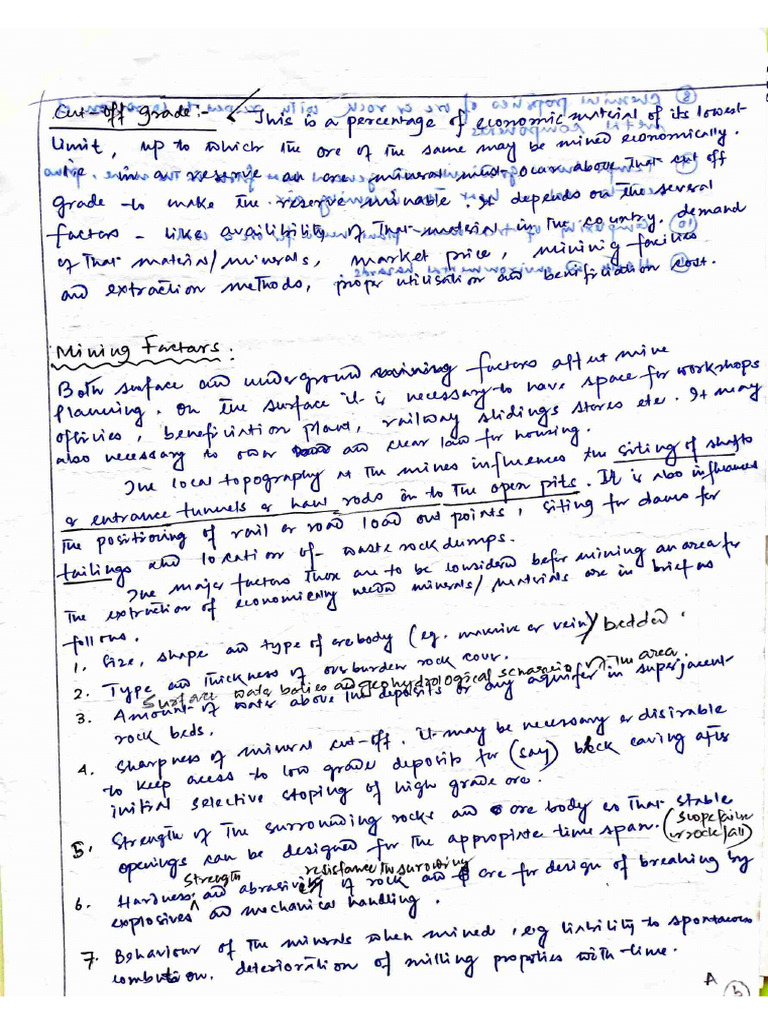 Cut-off Grade:- This is a percentage of economic material of its lowest
limit, up to which the ore of the same may be mined economically.
i.e. in an reserve an ore mineral must occur above that cut off
grade to make the reserve minable. It depends on the several
factors - like availibility of that material in the country, demand
of that material/minerals, market price, mining facilies
and extraction methods, proper utilisation and benifitiation cost.
Mining Factors:
Both surface and underground mining factors affect mine
planning. On the surface it is necessary to have space for workshops
officies, beneficiation plant, railway slidings stores etc. It may
also necessary to own and clear land for housing.
The local topography at the mines influences the siting of shafts
or entrance tunnels or haul rods in to the open pits. It is also influences
the positioning of rail or road load out points, siting for dams for
tailings and location of waste rock dumps.
The major factors that are to be considered before mining an area for
the extraction of economically needed minerals/materials are in brief as
follows.
1. Size, shape and type of orebody (eg. massive or vein)/bedded.
2. Type and thickness of overburden rock cover.
Surface water baties and geohydrological scenario of the area.
3. Amount of water above the deposits or any aquifer in superjacent
rock beds.
4. Sharpness of mineral cut-off. it may be necessary or disirable
to keep acess to low grade deposits for (say) block caving after
initial selective stoping of high grade ore.
5. Strength of the surrounding rocks and ore body so that stable
openings can be designed for the appropiate time span. (slope failure
or rock fall)
strength resistance
6. Hardness and abrasivity of rock and are for design of breaking by
explosives and mechanical handling.
7. Behaviour of the minerals when mined, eg liability to spontaeous
combution. deterioration of milling propties with time.
A
b